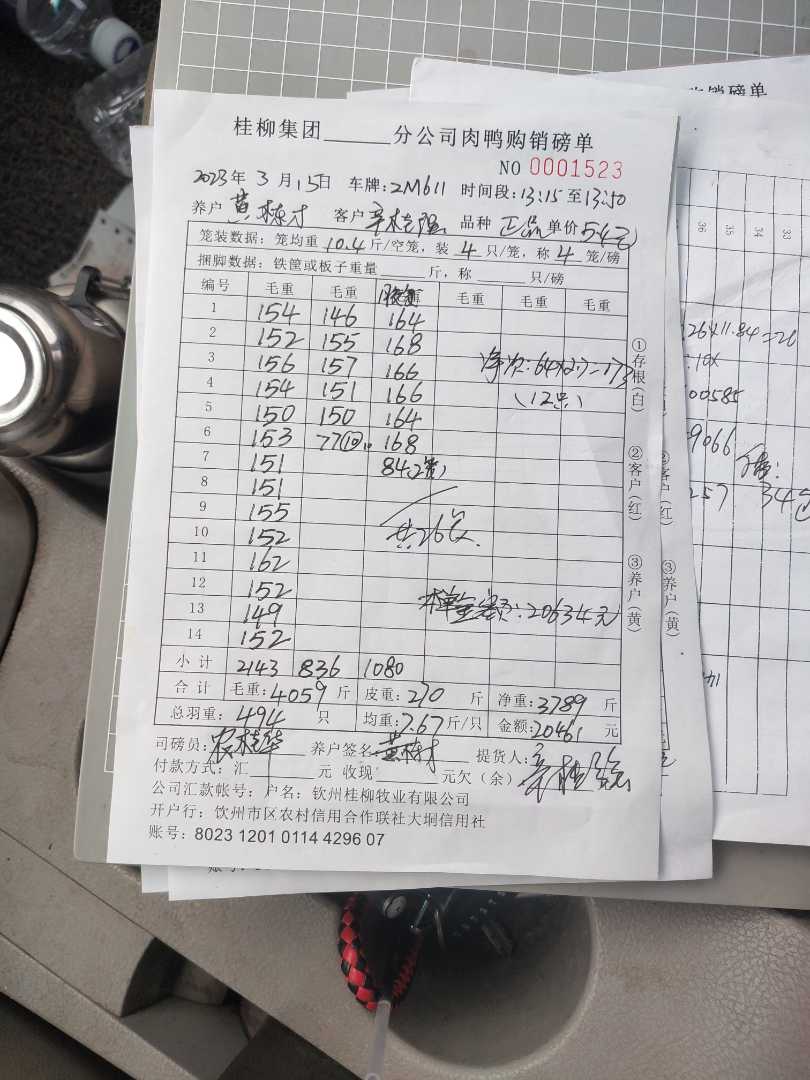 桂柳集团______分公司肉鸭购销磅单
NO 0001523
2023年 3月15日 车牌:2M611 时间段:13:15至13:50
养户 黄栋才 客户 辛桂强 品种 正品 单价5.4元
笼装数据:笼均重 10.4 斤/空笼,装 4 只/笼,称 4 笼/磅
捆脚数据:铁筐或板子重量______斤,称______只/磅
编号 毛重 毛重 毛重 毛重 毛重
1 154 146 164
2 152 155 168
3 156 157 166
4 154 151 166
5 150 150 164
6 153 77 168
7 151 84(2笼)
8 151
9 155
10 152
11 162
12 152
13 149
14 152
净次:64×2.7=173
(12只)
共26笼
20634元
小计 2143 836 1080
合计 毛重:4059斤 皮重:270斤 净重:3789斤
总羽重:494只 均重:7.67斤/只 金额:20461元
司磅员: 农桂华 养户签名 黄栋才 提货人: 辛桂强
付款方式:汇______元 收现______元欠(余)______
公司汇款帐号:户名:钦州桂柳牧业有限公司
开户行:饮州市区农村信用合作联社大垌信用社
账号:8023 1201 0114 4296 07
①存根(白)
②客户(红)
③养户(黄)
购销磅单
36 35 34 33
26×11.84=26
00585
9066
257 345
②客户(红)
③养户(黄)
14